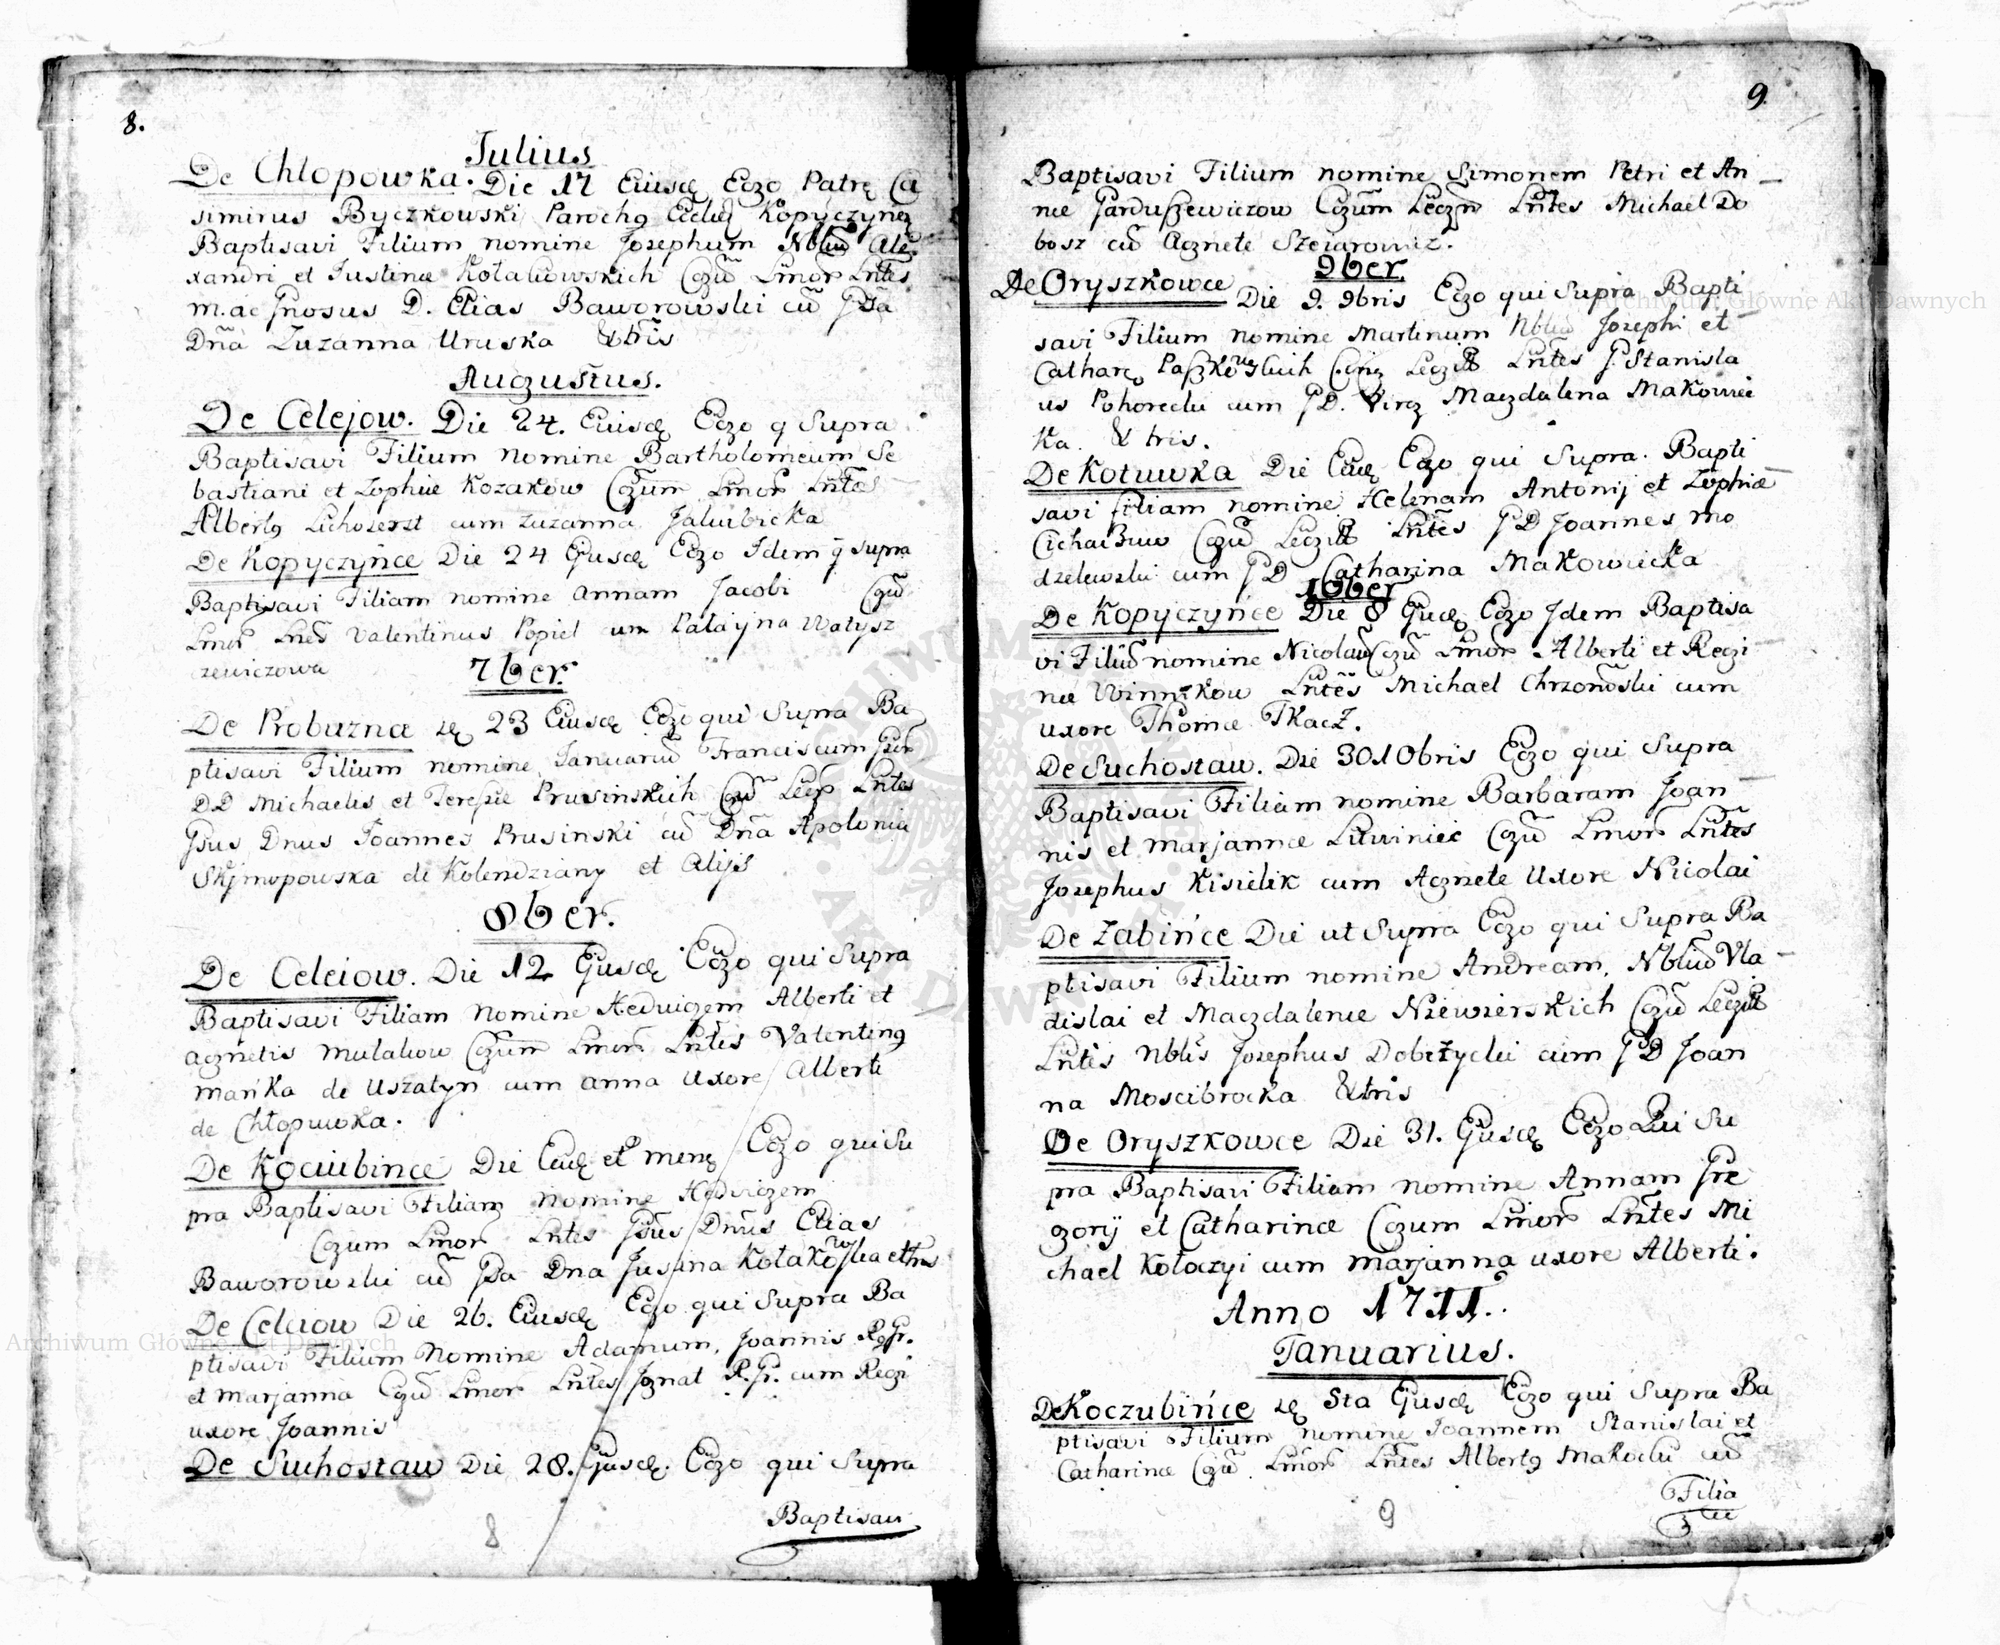 8.
Julius
De Chlopowka. Die 17 Eiusdę Ego Patrę Ca
simirus Byczkowski Parochq Eccłę Kopyczyng
Baptisavi Filium nomine Josephum Nbliu Ale
xandri et Justinæ Kołakowskich Cgzū Lmor Lntes
M. ac Gnosus D. Elias Baworowski cū Gsa
Dna Zuzanna Uruska &tris
Augustus.
De Celejow. Die 24. Eiusdę Ego q Supra
Baptisavi Filium Nomine Bartholomeum Se
bastiani et Zophiæ Kozakow Cgzum Lmor Lntes
Albertq cum Zuzanna
De Kopyczyńce Die 24 Ejusdę Ego Idem q supra
Baptisavi Filiam nomine Annam Jacobi Cgū
Lmor Valentinus Popiel um Palayna Watysz
zewiczowa
7ber.
De Probuzna 23 Eiusdę Ego qui Supra Ba
ptisavi Filium nomine Januariū Franciscum Gsor
DD Michaelis et Teresiæ Prusinskich Cgū Legt Lntes
Gsus Dnus Joannes Prusinski cū Dña Apolonia
Skjmopowska de Kolendziany et Alijs
8ber.
De Celeiow. Die 12 Ejusdę Ego qui Supra
Baptisavi Filiam Nomine Hedvigem Alberti et
Agnetis Mulakow Cgzum Lmor Lntes Valentinq
Mańka de Uszatyn cum Anna Uxore Alberti
de Chłopuwka.
De Kociubince Die Eadę et menę Ego qui Su
pra Baptisavi Filiam Nomine Hedvigem
Cgzum Lmor Lntes Gsus Dnus Elias
Baworowski cū Gsa Dna Jusina Kołakowska et
De Celeiow Die 26. Eiusdę Ego qui Supra Ba
ptisavi Filium Nomine Adamum, Joannis R.Gr.
et Marjanna Cgū Lmor Lntes Ignat R.Gr. cum Regi
uxore Joannis
De Suchostaw Die 28. Ejusdę. Ego qui Supra
Baptisavi
8
9.
Baptisavi Filium nomine Simonem Petri et An
næ Parduszewiczow Cgzum Legtm Lntes Michael Do
bosz cū Agnete
9ber.
De Oryszkowce Die 9. 9bris Ego qui Supra Bapti
savi Filium nomine Martinum Nbliū Josephi et
Catharę Paszkowskich Legitt Lntes G. Stanisla
us Pohorecki cum GD. Virg Magdalena Makowie
ka. & tris.
De Kotuwka Die Eadę Ego qui Supra. Bapti
savi filiam nomine Helenam Antonij et Zophiæ
Cgū Legitt Lntes GD Joannes Mo
dzelewski cum GD Catharina Makowiecka
10ber
De Kopyczyńce Die 8 Ejusdę Ego Idem Baptisa
vi Filiū nomine Nicolaū Cgū Lmor Alberti et Regi
næ Winnikow Lntes Michael Chrzonowski cum
uxore Thomæ Tkacz.
De Suchostaw. Die 30 10bris Ego qui Supra
Baptisavi Filiam nomine Barbaram Joan
nis et Marjannæ Litwiniec Cgū Lmor Lntes
Josephus Kisielik cum Agnete Uxore Nicolai
De Zabińce Die ut Supra Ego qui Supra Ba
ptisavi Filium nomine Andream, Nbliū Vla
dislai et Magdalenæ Niewierskich Cgū Legitt
Lntes Nblis Josephus Dobrzycki cum GD Joan
na Moscibrocka &tris
De Oryszkowce Die 31. Ejusdę Ego Qui Su
pra Baptisavi Filiam nomine Annam Gre
gorij et Catharinæ Cgzum Lmor Lntes Mi
chael Kołaczyi cum Marjanna uxore Alberti.
Anno 1711.
Januarius.
De Koczubińce 5ta Ejusdę Ego qui Supra Ba
ptisavi Filium nomine Joannem Stanislai et
Catharinæ Cgū Lmor Lntes Albertq Makocki cū
Filia
9
Archiwum Główne Akt Dawnych
Archiwum Główne Akt Dawnych
ARCHIWUM GŁÓWNE AKT DAWNYCH